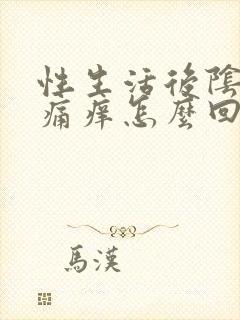 性生活後陰
痛痒怎麼回
馬漢